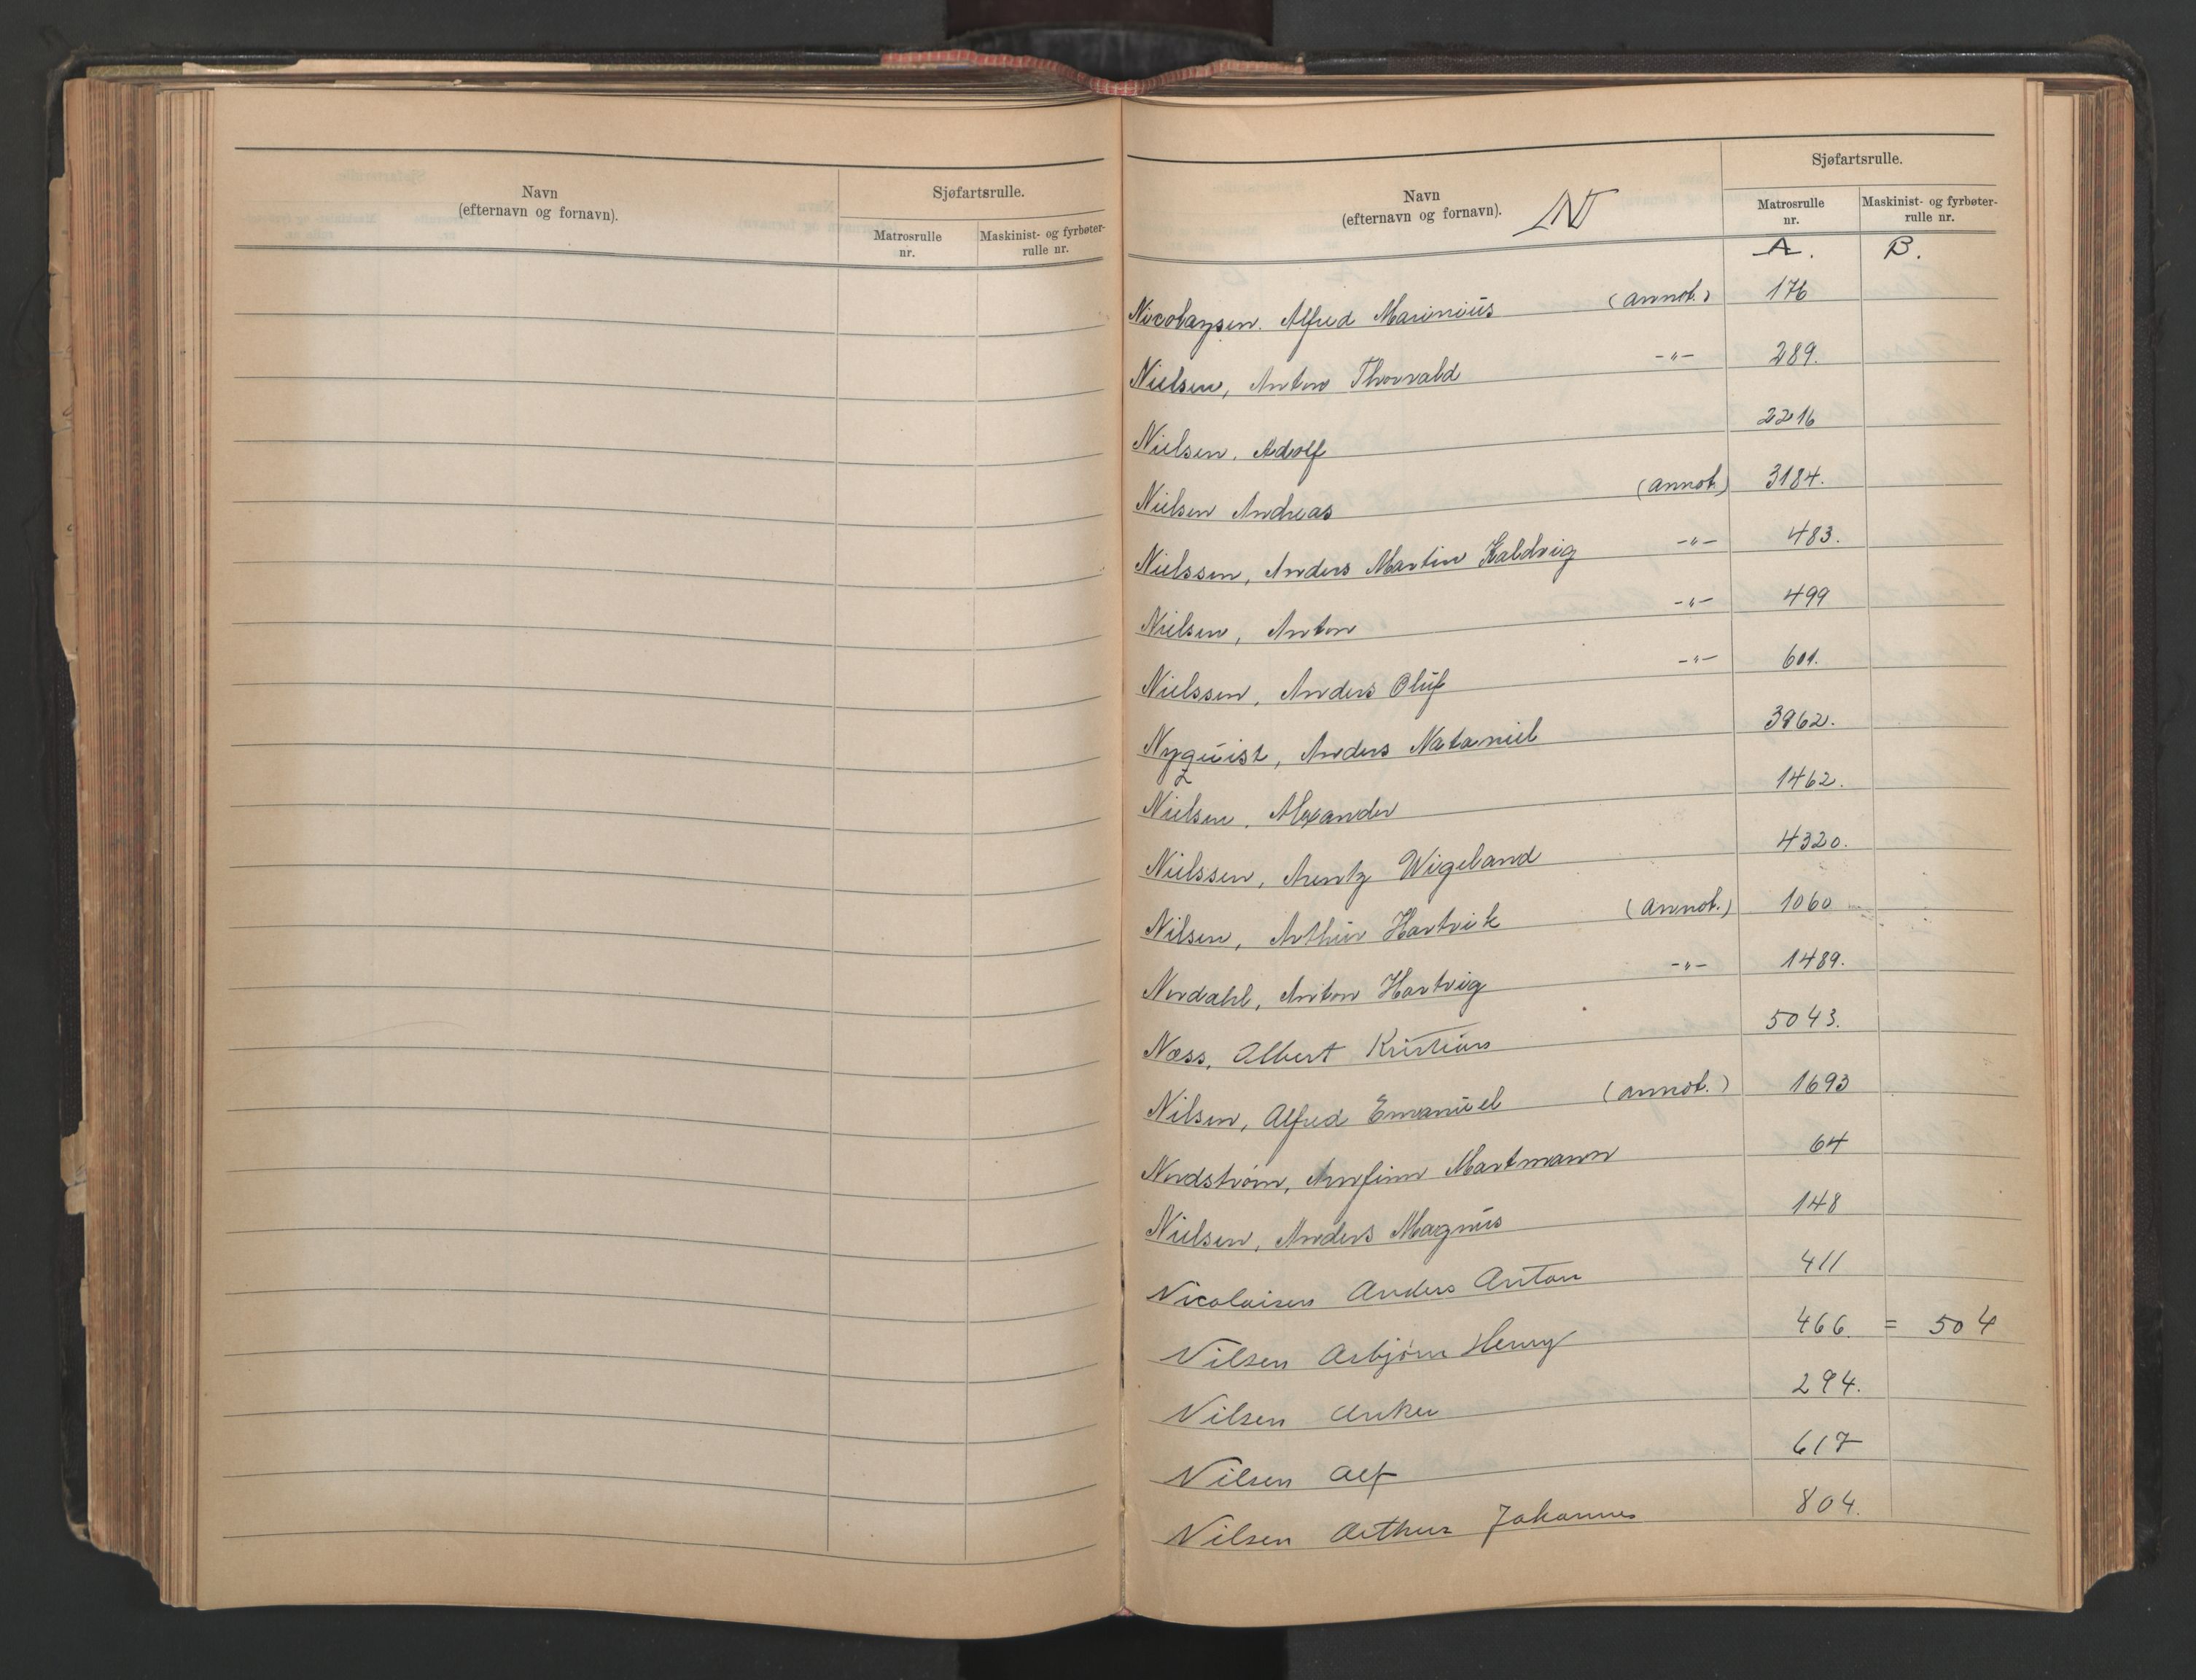 Navn
(efternavn og fornavn).
Sjøfartsrulle.
Matrosrulle
nr.
Maskinist- og fyrbøter-
rulle nr.
Navn
(efternavn og fornavn).
N
Sjøfartsrulle.
Matrosrulle
nr.
Maskinist- og fyrbøter-
rulle nr.
A. B.
Nicolaysen. Alfred Marinius (annot.) 176
Nielsen, Anton Thorvald -"- 289.
Nielsen, Adolf 2216
Nielsen Andreas (annot.) 3184.
Nielssen, Anders Martin Kaldvig -"- 483.
Nielsen, Anton -"- 499
Nielssen, Anders Oluf -"- 601.
Nyquist, Anders Nataniel 3962.
Nielsen, Alexander 1462.
Nielssen, Arentz Wigeland 4320.
Nilsen, Arthur Hartvik (annot.) 1060
Nordahl, Anton Hartvig -"- 1489.
Næss, Albert Kristian 5043.
Nilsen, Alfred Emanuel (annot.) 1693
Nordstrøm, Arnfinn Martmann 64
Nielsen, Anders Magnus 148
Nicolaisen Anders Anton 411
Nilsen Asbjørn Henry 466. = 504
Nilsen Anker 294.
Nilsen Alf 617
Nilsen Arthur Johannes 804.